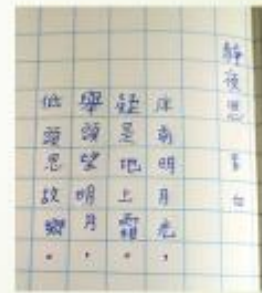 靜夜思 李白
床前明月光，
疑是地上霜。
舉頭望明月，
低頭思故鄉。